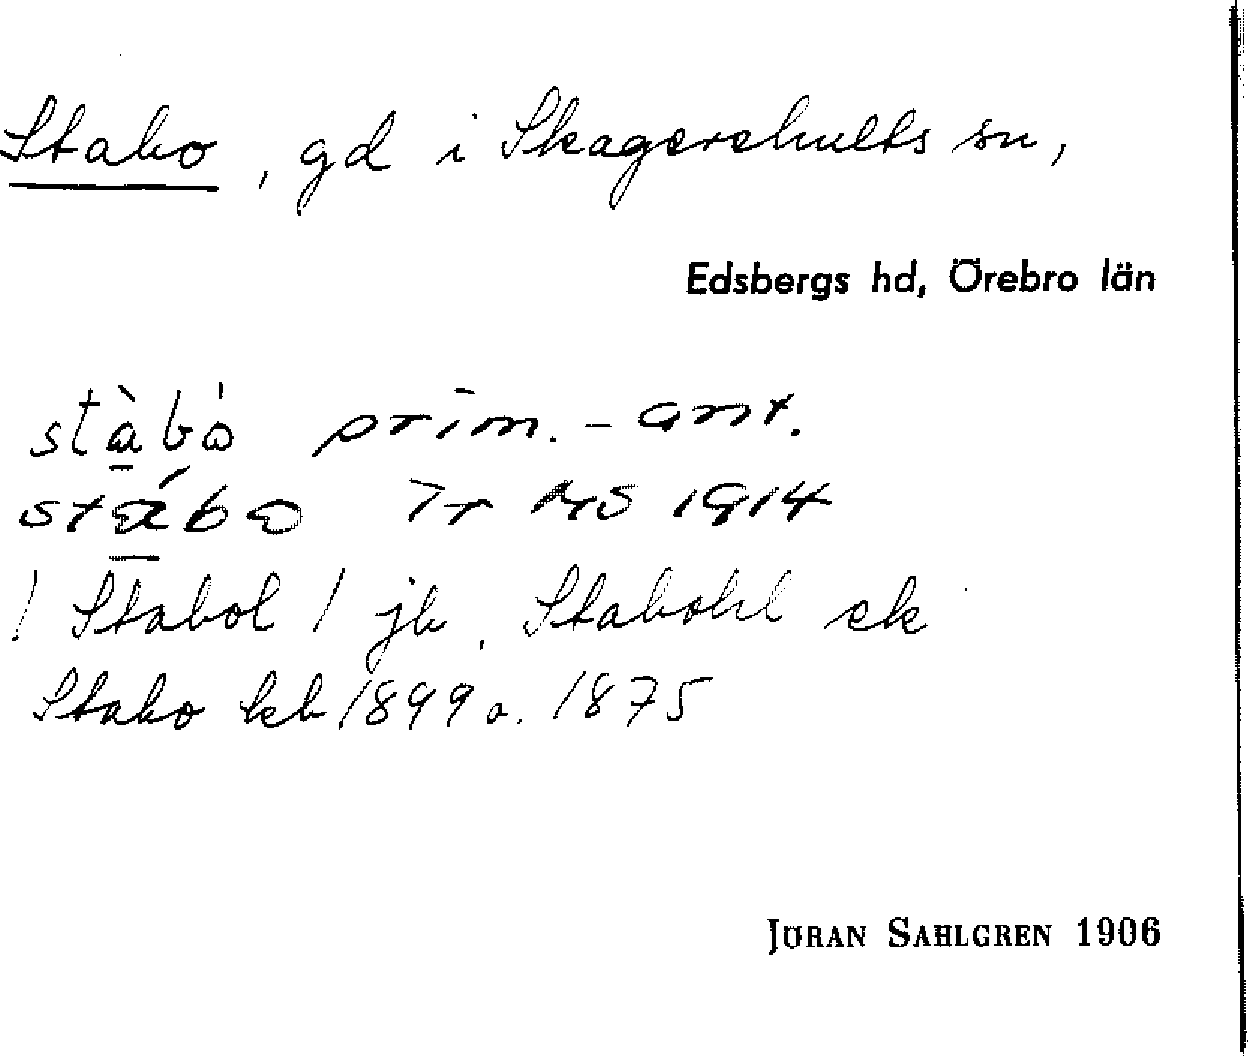 Stabo, gd i Skagershults sn,
Edsbergs hd, Örebro län
stàbò prim.-ant.
stábo 1914
/ Stabol / jb. Stabohl ek
Stabo kb 1899 o. 1875
JÖRAN SAHLGREN 1906